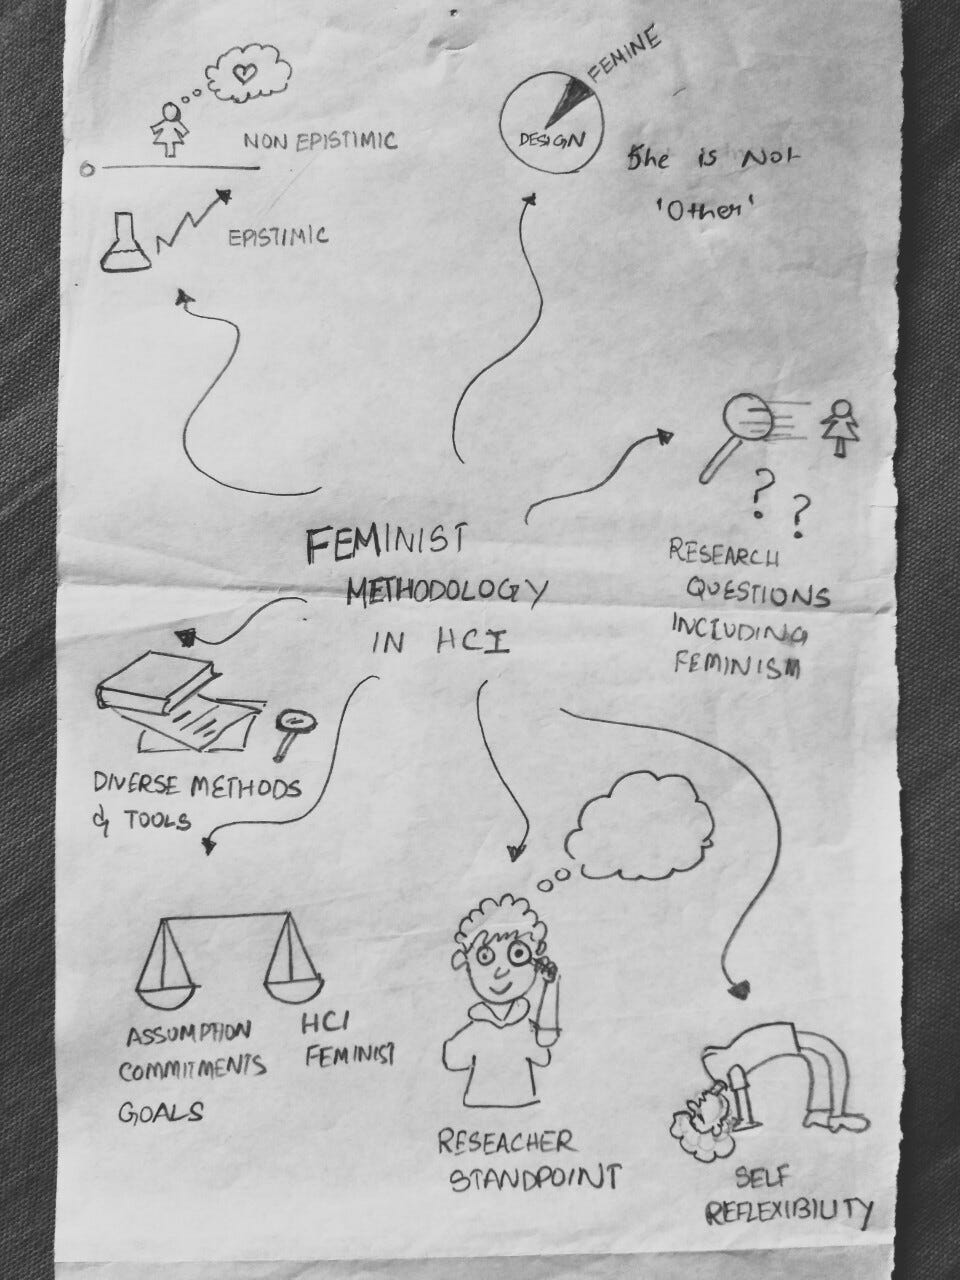 NON EPISTIMIC
EPISTIMIC
FEMINE
DESIGN
She is Not
'Other'
FEMINIST
METHODOLOGY
IN HCI
RESEARCH
QUESTIONS
INCLUDING
FEMINISM
? ?
DIVERSE METHODS
& TOOLS
ASSUMPTION
COMMITMENTS
GOALS
HCI
FEMINIST
RESEACHER
STANDPOINT
SELF
REFLEXIBILITY